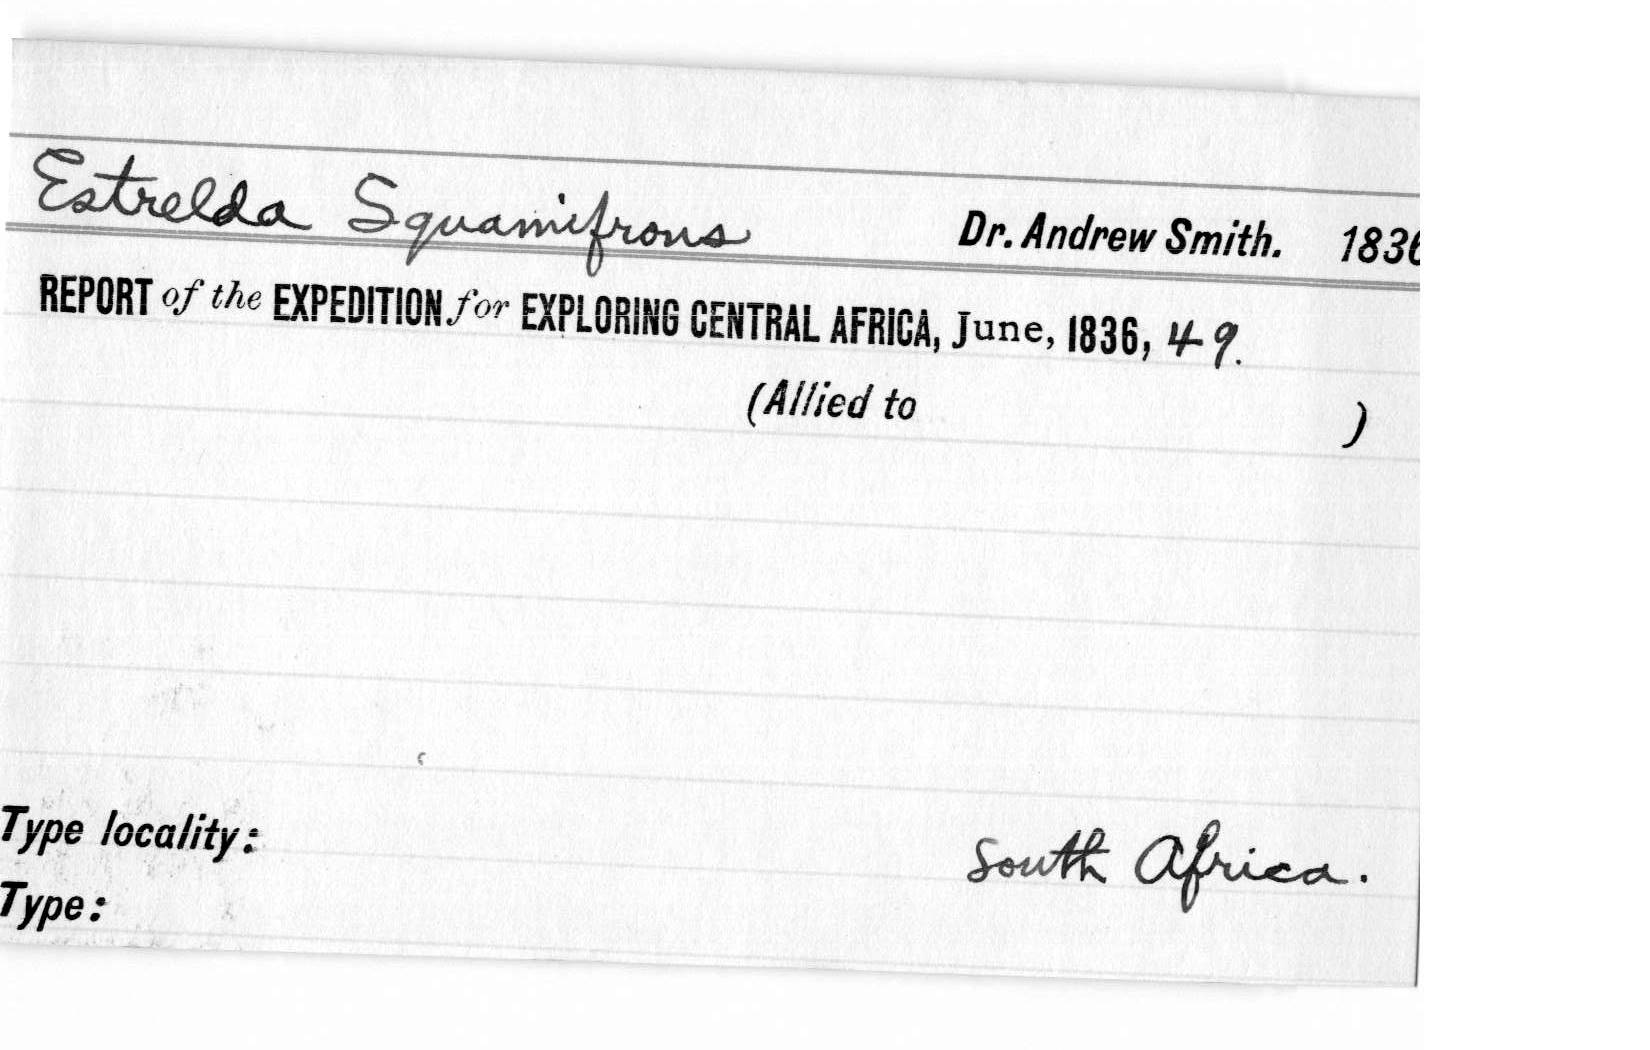 Estrelda Squamifrons Dr. Andrew Smith. 1836
REPORT of the EXPEDITION for EXPLORING CENTRAL AFRICA, June, 1836, 49.
(Allied to )
Type locality: South Africa.
Type: